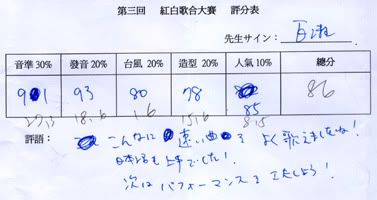 第三回 紅白歌合大賽 評分表
先生サイン:
音準 30% 發音 20% 台風 20% 造型 20% 人氣 10% 總分
91 93 80 78 85 86
27.3 18.6 16 15.6 8.5
評語: こんなに速い曲を よく歌えましたね!
日本語も上手でした!
次はパフォーマンスを工夫しよう!